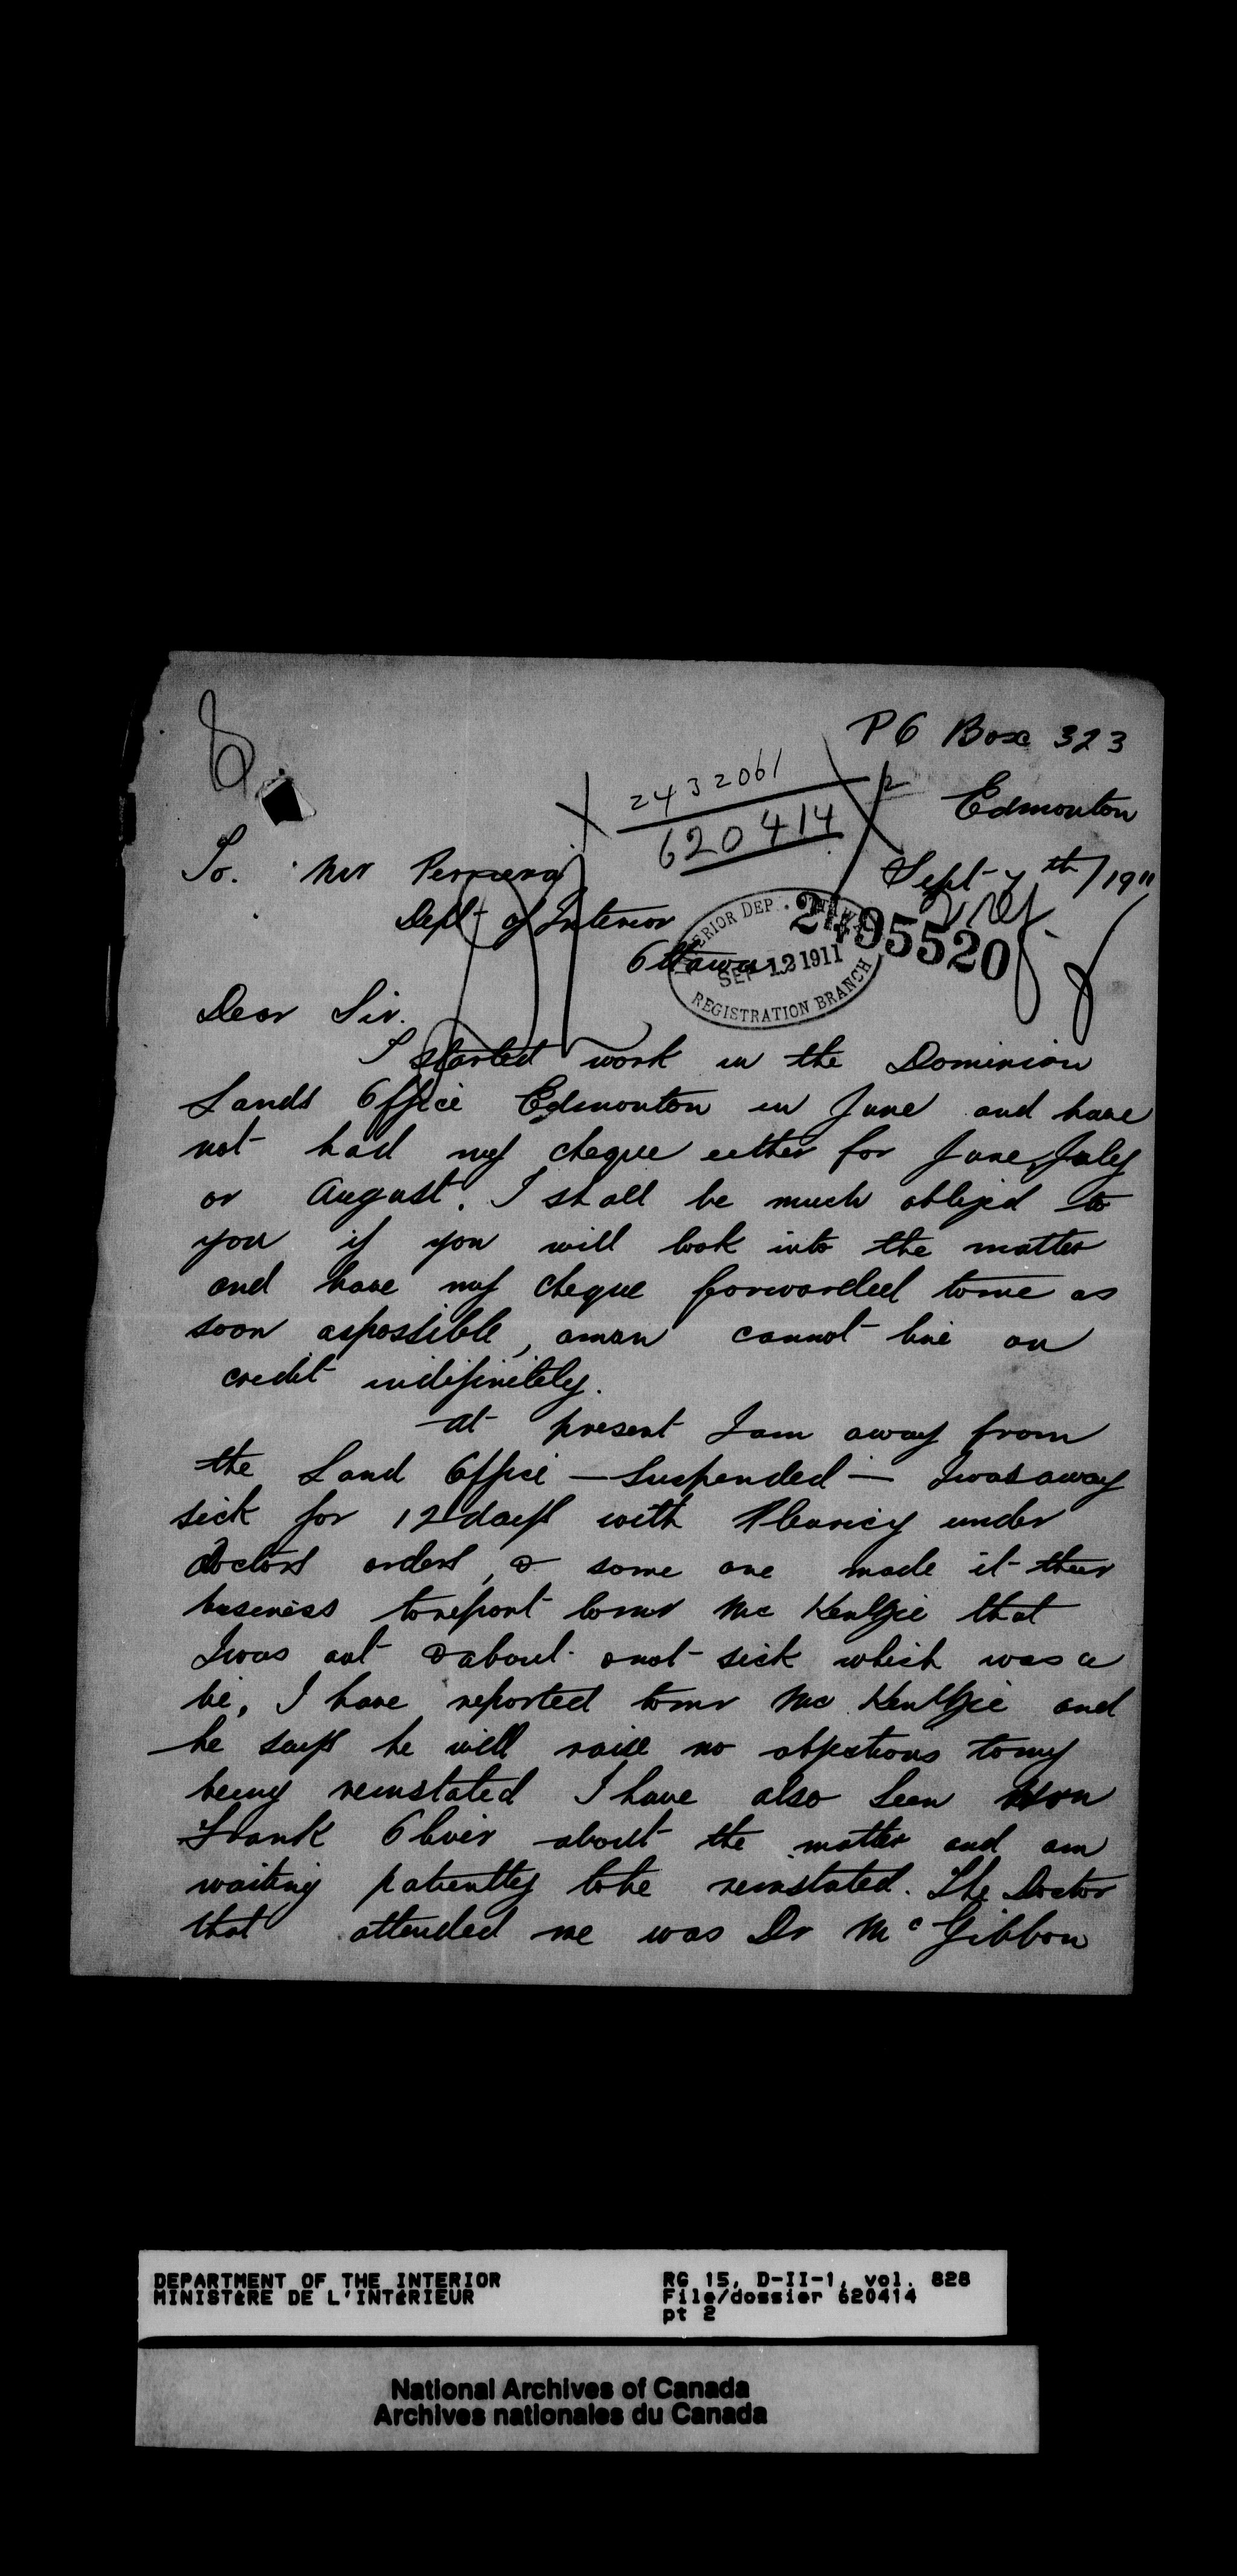 P O Box 323
2432061
Edmonton
620414
To. Mr Perriera
Sept 7th/1911
Dept of Interior
2495520
Ottawa
SEP 12 1911
REGISTRATION BRANCH
Dear Sir.
I started work in the Dominion
Lands Office Edmonton in June and have
not had my cheque either for June, July
or August. I shall be much obliged to
you if you will look into the matter
and have my cheque forwarded to me as
soon as possible, a man cannot live on
credit indefinitely.
At present I am away from
the Land Office — Suspended — I was away
sick for 12 days with Pleuricy under
doctors orders, & some one made it their
business to report to Mr Mc Kenzie that
I was out & about & not sick which was a
lie. I have reported to Mr Mc Kenzie and
he says he will raise no objections to my
being reinstated I have also seen Hon
Frank Oliver about the matter and am
waiting patiently to be reinstated. The Doctor
that attended me was Dr Mc Gibbon
DEPARTMENT OF THE INTERIOR
MINISTÈRE DE L'INTÉRIEUR
RG 15, D-II-1, vol. 828
File/dossier 620414
pt 2
National Archives of Canada
Archives nationales du Canada